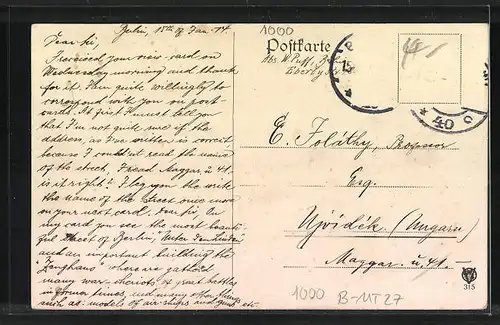 Berlin, 15th of Jan. 14.
Dear Sir,
I received your view-card on
Wednesday morning and thank
for it. I am quite willingly to
correspond with you on post-
cards. At first I must tell you
that I'm not quite sure if the
address, as I've written is correct,
because I could'nt read the name
of the street. I read Magyar u. 41.
is it right? I beg you the write
the name of the street once more
on your next card. Dear Sir, On
my card you see the most beauti-
ful Street of Berlin, "Unter den Linden"
and an important building the
"Zeughaus" where are gathered
many war- of great battles
in former times, and many other things
such as models of air-ships and guns etc.
1000
Postkarte
Abs. W. Puff,
14
15
40
E. Foláthy, Professor
Esq.
Ujvidék (Ungarn)
Magyar u. 41.
1000 B-MT27
315